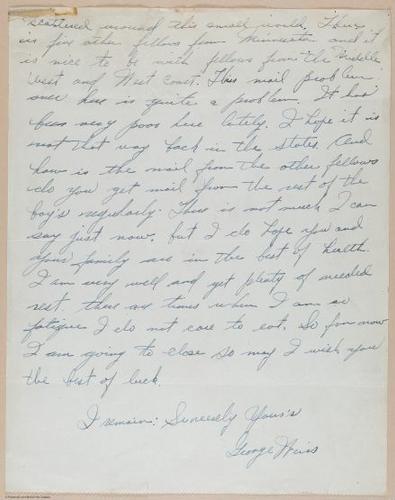 scattered around this small world. There
is five other fellows from Minnesota and it
is nice to be with fellows from the Middle
West and West Coast. This mail problem
over here is quite a problem. It has
been very poor here lately. I hope it is
not that way back in the States. And
how is the mail from the other fellows
do you get mail from the rest of the
boy's regularly. There is not much I can
say just now, but I do hope you and
your family are in the best of health.
I am very well and get plenty of needed
rest. there are times when I am so
fatigue I do not care to eat. So for now
I am going to close so may I wish you
the best of luck.
I remain: Sincerely Yours's
George